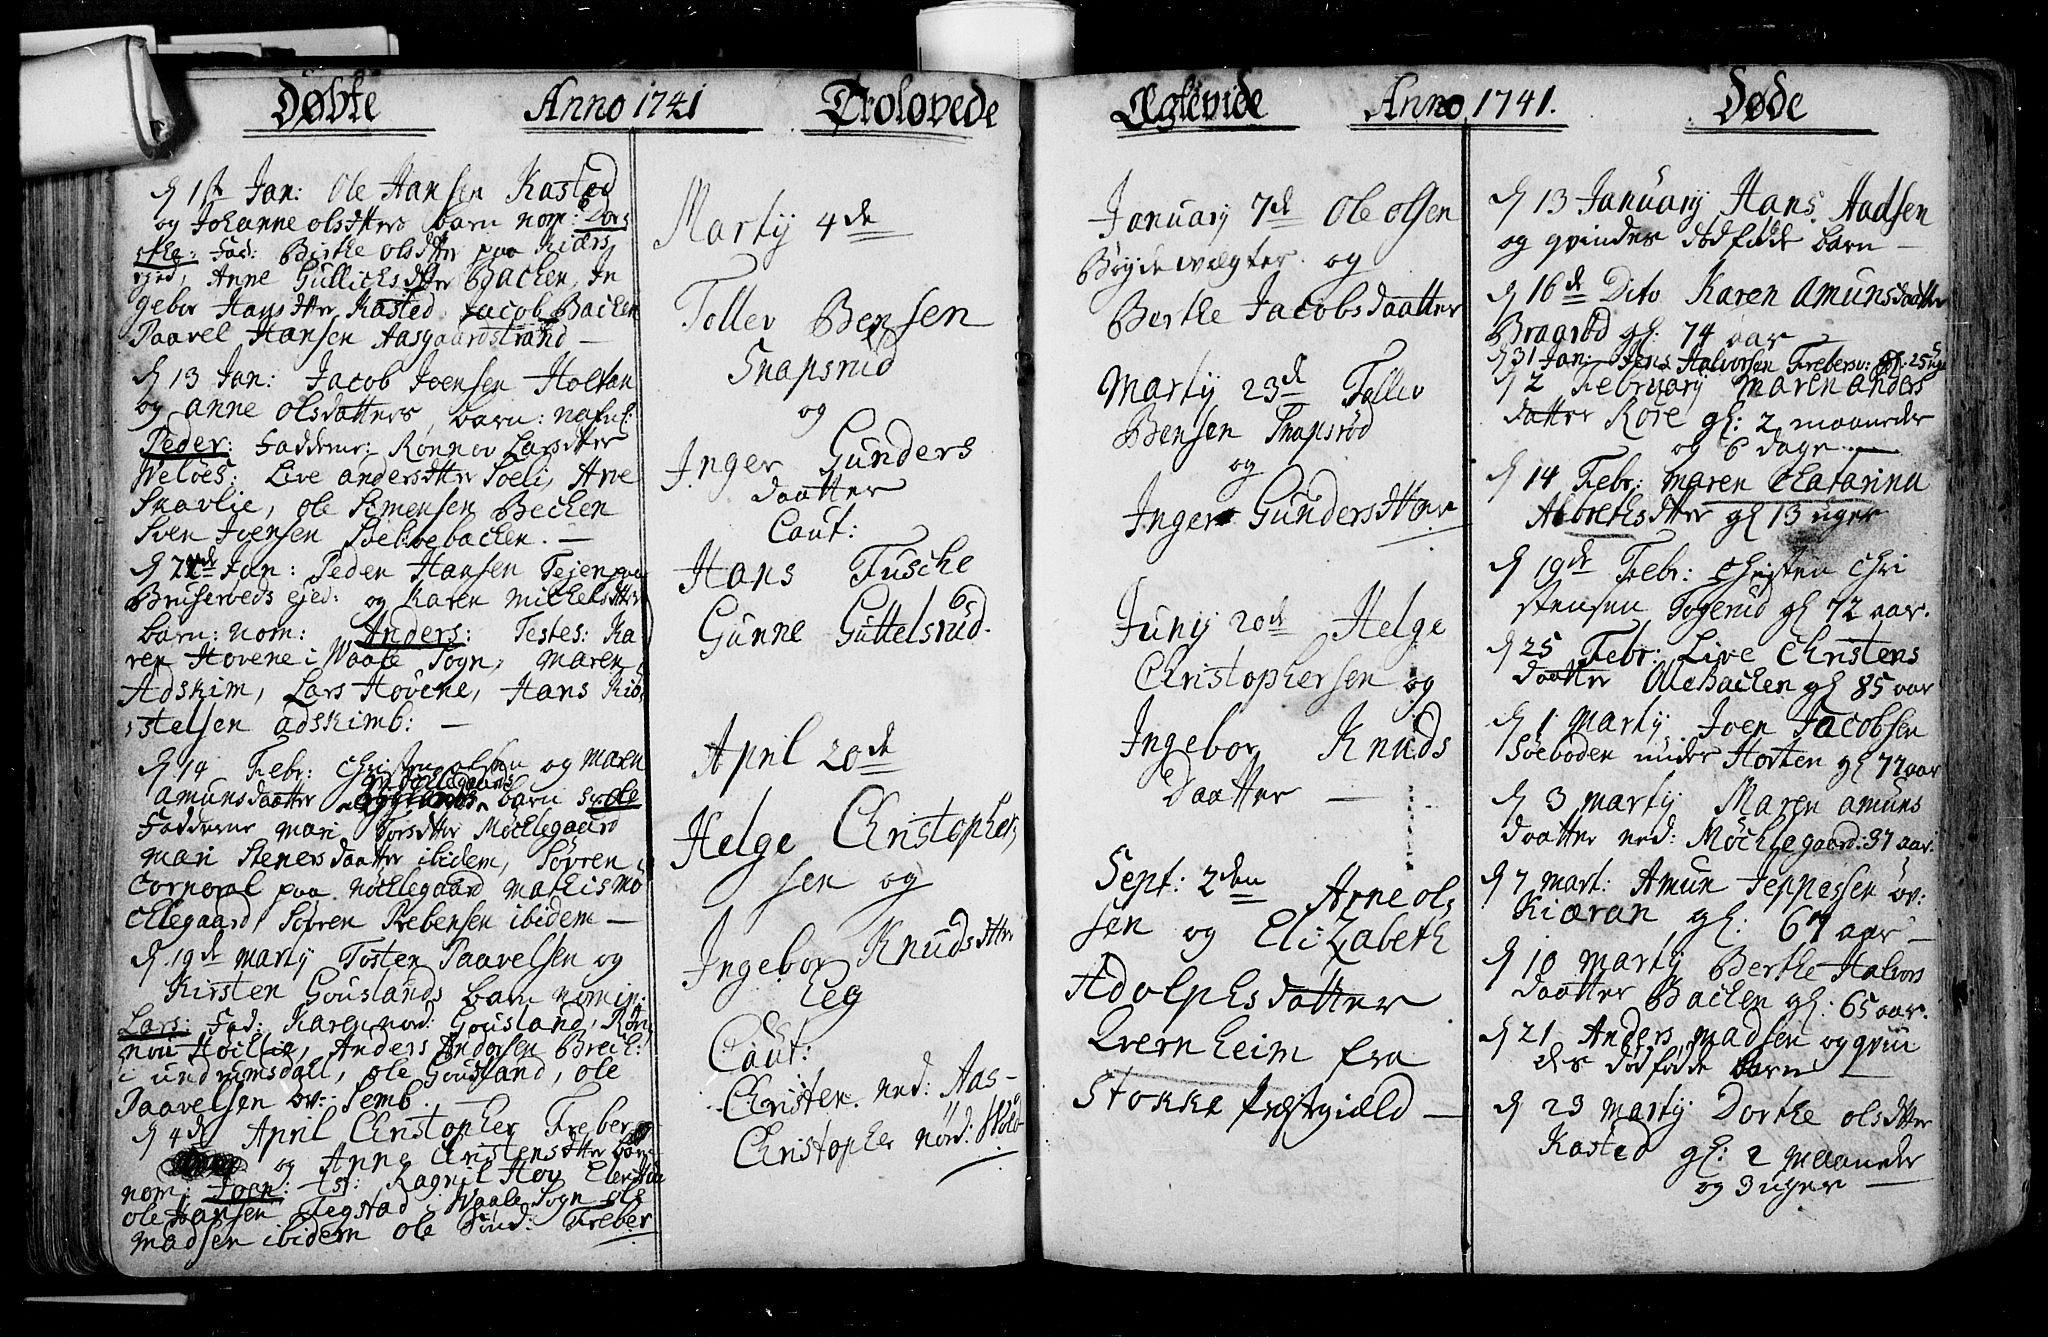 Døbte
Anno 1741
Trolovede
D 1st Jan: Ole Hansen Kasted
og Johanne olsdtters barn nom: Dor
the: Fad: Birthe olsdtter paa Kiærs
ejed, Anne Gullichsdtter Bachen, In
gebor Hansdtter Kasted, Jacob Bachen
Paavel Hansen Aasgaardstrand —
D 13 Jan: Jacob Joensen Holtan
og anne olsdatters barn: nafnl:
Peder: Fadderne: Rönnov Larsdtter
Weløes: Live andersdtter Soeli, Arve
Skavlie, ole Simensen Bechen
Sven Joensen Bekkebachen. —
D 22de Jan: Peder Hansen Tejen paa
Bruserveds ejed: og Karen Michelsdtter
barn: nom: Anders: Testes: Ka
ren Hovene i Waale Sogn, maren
Adskim, Lars Hovene, Hans Kiø
stelsen adskimb: —
D 14 Febr: Christen olsen og Maren
amunsdaatter Möchlegaards barn ole
Fadderne mari Torsdtter Möchlegaard
mari Stenersdaatter ibidem, Sövren
Corporal paa möchlegaard mathis mö
chlegaard, Sövren Prebensen ibidem —
D 19de marty Tosten Paavelsen og
Kirsten Gouslands barn nomin:
Lars: Fad: Karen nord: Gousland, Rön
nou Höllie, Anders Andersen Brech:
i undrumsdall, ole Gousland, ole
Paavelsen öv: Semb.
D 4de April Christopher Freber
og Anne Christensdtter barn
nom: Joen: Tst: Ragnil Hov
ole Hansen Tegstad i Waale Sogn ole
madsen ibidem ole Sönd: Freber
Marty 4de
Tollev Bensen
Snapsrud
og
Inger Gunders
daatter
Caut:
Hans Fusche
Gunne Guttelsrud.
April 20de
Helge Christopher,
sen og
Ingebor Knudsdtter
Eeg
Caut:
Christen ned: Aas-
Christopher nörd: Wold
Ægtevide
Anno 1741.
Døde
January 7de Ole olsen
Bøyde vægter og
Berthe Jacobsdaatter
Marty 23de Tollev
Bensen Snapsröd
og
Inger Gundersdtter
Juny 20de Helge
Christophersen og
Ingebor Knuds
Daatter —
Sept: 2den Arne ol,
sen og Elizabeth
Adolphsdatter
Qvernheim fra
Stokke Præstgiæld —
D 13 January Hans Aadsen
og qvindes dødfødde barn —
D 16de Dito Karen Amunsdaatter
Braaröd gl: 74 aar —
D 31 Jan: Jens Halvorsen Frebersv: gl: 25 uge
D 2 February maren anders
datter Röre gl: 2 maaneder
og 6 dage —
D 14 Febr: maren Chatarina
Albrethsdtter gl 13 uger
D 19de Febr: Christen Chri
stensen Fogerud gl 72 aar.
D 25 Febr: Live Christens
daatter OleBachen gl 85 aar
D 1 marty Joen Jacobsen
Soeboden under Horten gl 72 aar
D 3 marty Maren amuns
daatter ned: Möchlegaard: 37 aar:
D 7 mart: Amun Jeppessen öv:
Kiæran gl: 67 aar —
D 10 marty Berthe Halvors
daatter Bachen gl: 65 aar.
D 21 Anders madsen og qvin
des dødfødde barn —
D 23 marty Dorthe olsdtter
Kasted gl: 2 maaneder
og 3 uger —